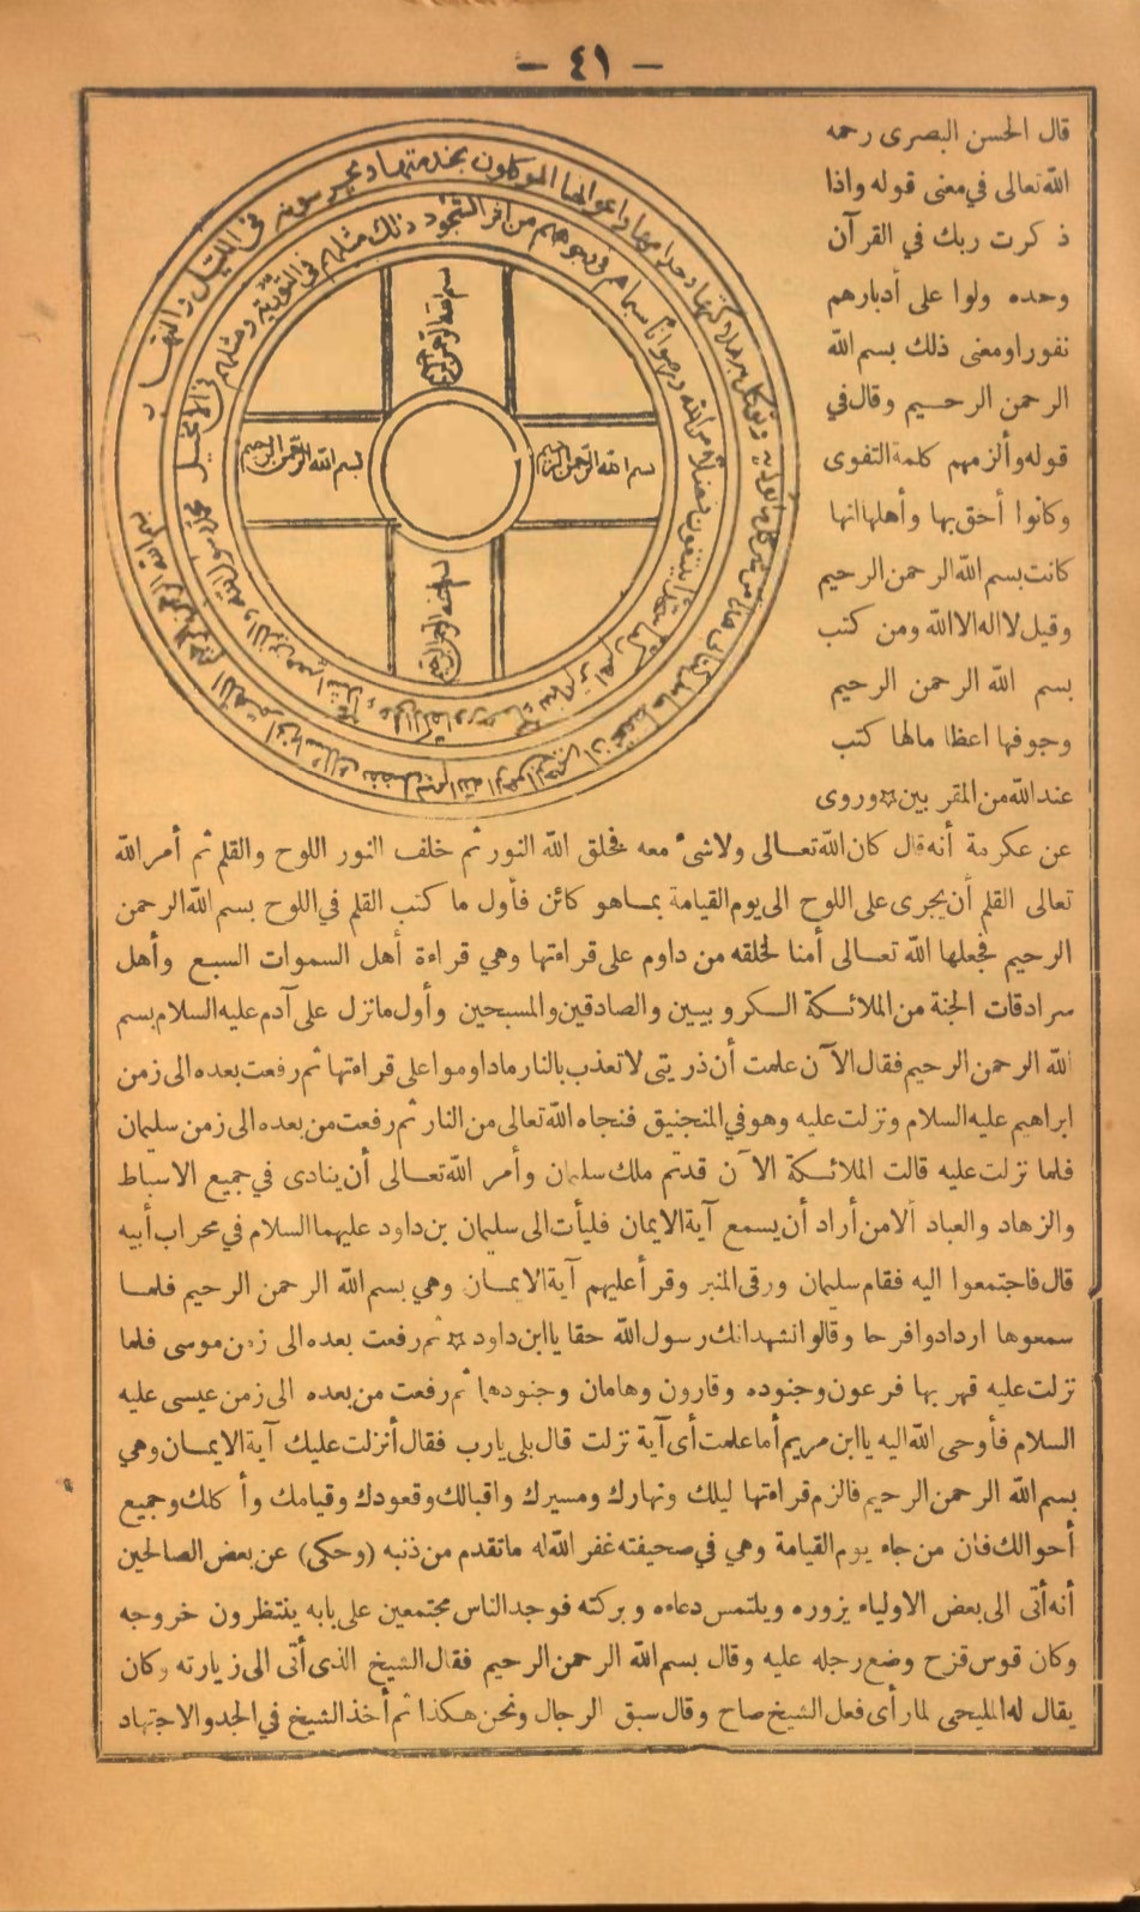 — ٤١ —
قال الحسن البصرى رحمه
الله تعالى في معنى قوله واذا
ذكرت ربك في القرآن
وحده ولوا على أدبارهم
نفورا ومعنى ذلك بسم الله
الرحمن الرحيم وقال في
قوله وألزمهم كلمة التقوى
وكانوا أحق بها وأهلها انها
كانت بسم الله الرحمن الرحيم
وقيل لا اله الا الله ومن كتب
بسم الله الرحمن الرحيم
وجوفها اعظاما لها كتب
عند الله من المقربين ✡ وروى
بسم الله الرحمن الرحيم
بسم الله الرحمن الرحيم
بسم الله الرحمن الرحيم
بسم الله الرحمن الرحيم
محمد رسول الله والذين معه أشداء على الكفار رحماء بينهم تراهم ركعا سجدا يبتغون فضلا من الله ورضوانا سيماهم في وجوههم من أثر السجود ذلك مثلهم في التوراة ومثلهم في الانجيل
بسم الله الرحمن الرحيم اللهم انى أسألك بفضل بسم الله الرحمن الرحيم
عن عكرمة أنه قال كان الله تعالى ولا شئ معه فخلق الله النور ثم خلف النور اللوح والقلم ثم أمر الله
تعالى القلم أن يجرى على اللوح الى يوم القيامة بما هو كائن فأول ما كتب القلم في اللوح بسم الله الرحمن
الرحيم فجعلها الله تعالى أمنا لخلقه من داوم على قراءتها وهي قراءة أهل السموات السبع وأهل
سرادقات الجنة من الملائكة الكروبيين والصادقين والمسبحين وأول ما نزل على آدم عليه السلام بسم
الله الرحمن الرحيم فقال الآن علمت أن ذريتى لا تعذب بالنار ما داوموا على قراءتها ثم رفعت بعده الى زمن
ابراهيم عليه السلام ونزلت عليه وهو في المنجنيق فنجاه الله تعالى من النار ثم رفعت من بعده الى زمن سليمان
فلما نزلت عليه قالت الملائكة الآن قد تم ملك سليمان وأمر الله تعالى أن ينادى في جميع الاسباط
والزهاد والعباد ألا من أراد أن يسمع آية الايمان فليأت الى سليمان بن داود عليهما السلام في محراب أبيه
قال فاجتمعوا اليه فقام سليمان ورقى المنبر وقرأ عليهم آية الايمان وهي بسم الله الرحمن الرحيم فلما
سمعوها ازدادوا فرحا وقالوا نشهد انك رسول الله حقا يا ابن داود ✡ ثم رفعت بعده الى زمن موسى فلما
نزلت عليه قهر بها فرعون وجنوده وقارون وهامان وجنودها ثم رفعت من بعده الى زمن عيسى عليه
السلام فأوحى الله اليه يا ابن مريم أما علمت أى آية نزلت قال بلى يا رب فقال أنزلت عليك آية الايمان وهي
بسم الله الرحمن الرحيم فالزم قراءتها ليلك ونهارك ومسيرك واقبالك وقعودك وقيامك وأكلك وجميع
أحوالك فان من جاء يوم القيامة وهي في صحيفته غفر الله له ما تقدم من ذنبه (وحكى) عن بعض الصالحين
أنه أتى الى بعض الاولياء يزوره ويلتمس دعاءه وبركته فوجد الناس مجتمعين على بابه ينتظرون خروجه
وكان قوس قزح وضع رجله عليه وقال بسم الله الرحمن الرحيم فقال الشيخ الذى أتى الى زيارته وكان
يقال له المليحى لما رأى فعل الشيخ صاح وقال سبق الرجال ونحن هكذا ثم أخذ الشيخ في الجد والاجتهاد